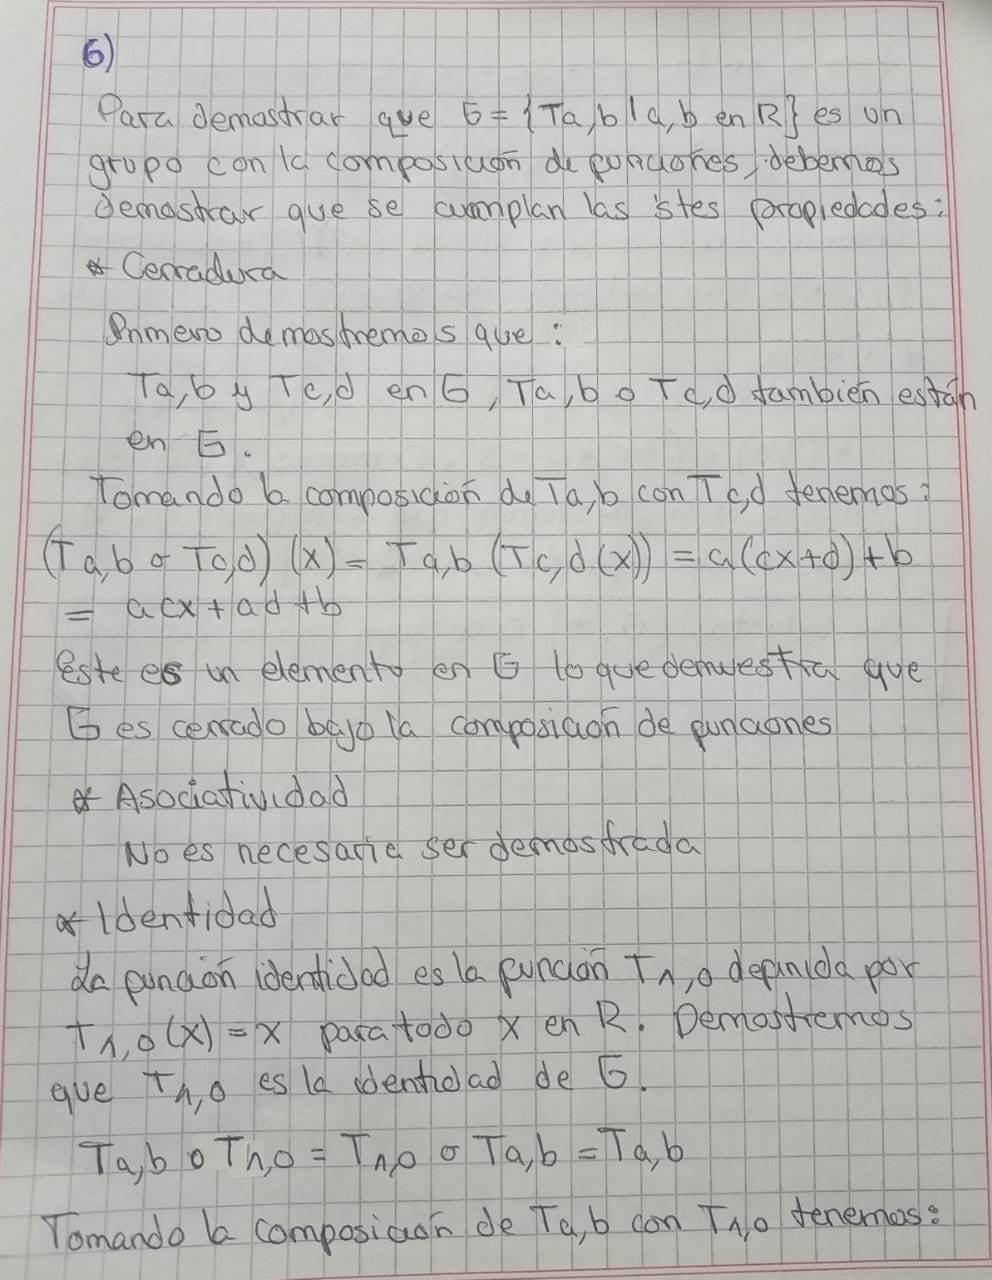 6)
Para demostrar que G = {Ta,b | a,b en R} es un
grupo con la composición de funciones, debemos
demostrar que se cumplan las s'tes propiedades:
* Cerradura
Primero demostremos que:
Ta,b y Tc,d en G, Ta,b o Tc,d también están
en G.
Tomando la composición de Ta,b con Tc,d tenemos:
(Ta,b o Tc,d) (x) = Ta,b (Tc,d(x)) = a(cx+d)+b
= acx + ad + b
este es un elemento en G lo que demuestra que
G es cerrado bajo la composición de funciones
* Asociatividad
No es necesaria ser demostrada
* Identidad
La función identidad es la función T1,0 definida por
T1,0(x) = x para todo x en R. Demostremos
que T1,0 es la identidad de G.
Ta,b o T1,0 = T1,0 o Ta,b = Ta,b
Tomando la composición de Ta,b con T1,0 tenemos: